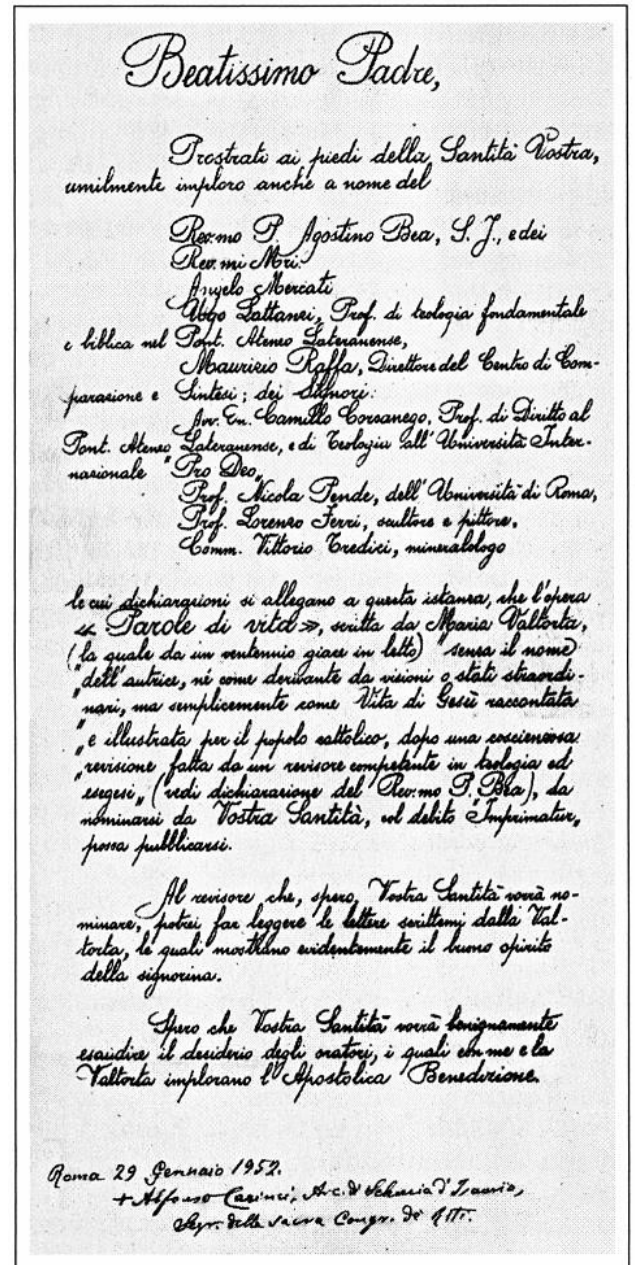 Beatissimo Padre,
Prostrati ai piedi della Santità Vostra,
umilmente imploro anche a nome del
Rev.mo P. Agostino Bea, S. J., e dei
Rev.mi Mri.
Angelo Mercati
Ugo Lattanzi, Prof. di teologia fondamentale
e biblica nel Pont. Ateneo Lateranense,
Maurizio Raffa, Direttore del Centro di Com-
parazione e Sintesi; dei Signori:
Avv. On. Camillo Corsanego, Prof. di Diritto al
Pont. Ateneo Lateranense, e di Teologia all'Università Inter-
nazionale "Pro Deo„
Prof. Nicola Pende, dell'Università di Roma,
Prof. Lorenzo Ferri, scultore e pittore,
Comm. Vittorio Tredici, mineralologo
le cui dichiarazioni si allegano a questa istanza, che l'opera
« Parole di vita », scritta da Maria Valtorta,
(la quale da un ventennio giace in letto) "senza il nome
"dell'autrice, nè come derivante da visioni o stati straordi-
"nari, ma semplicemente come Vita di Gesù raccontata
"e illustrata per il popolo cattolico, dopo una coscienziosa
"revisione fatta da un revisore competente in teologia ed
esegesi„ (vedi dichiarazione del Rev.mo P. Bea), da
nominarsi da Vostra Santità, col debito Imprimatur,
possa pubblicarsi.
Al revisore che, spero, Vostra Santità vorrà no-
minare, potrei far leggere le lettere scrittemi dalla Val-
torta, le quali mostrano evidentemente il buono spirito
della signorina.
Spero che Vostra Santità vorrà benignamente
esaudire il desiderio degli oratori, i quali con me e la
Valtorta implorano l'Apostolica Benedizione.
Roma 29 Gennaio 1952.
+ Alfonso Carinci, Arc. di Seleucia d'Isauria,
Segr. della Sacra Congr. de' Riti.